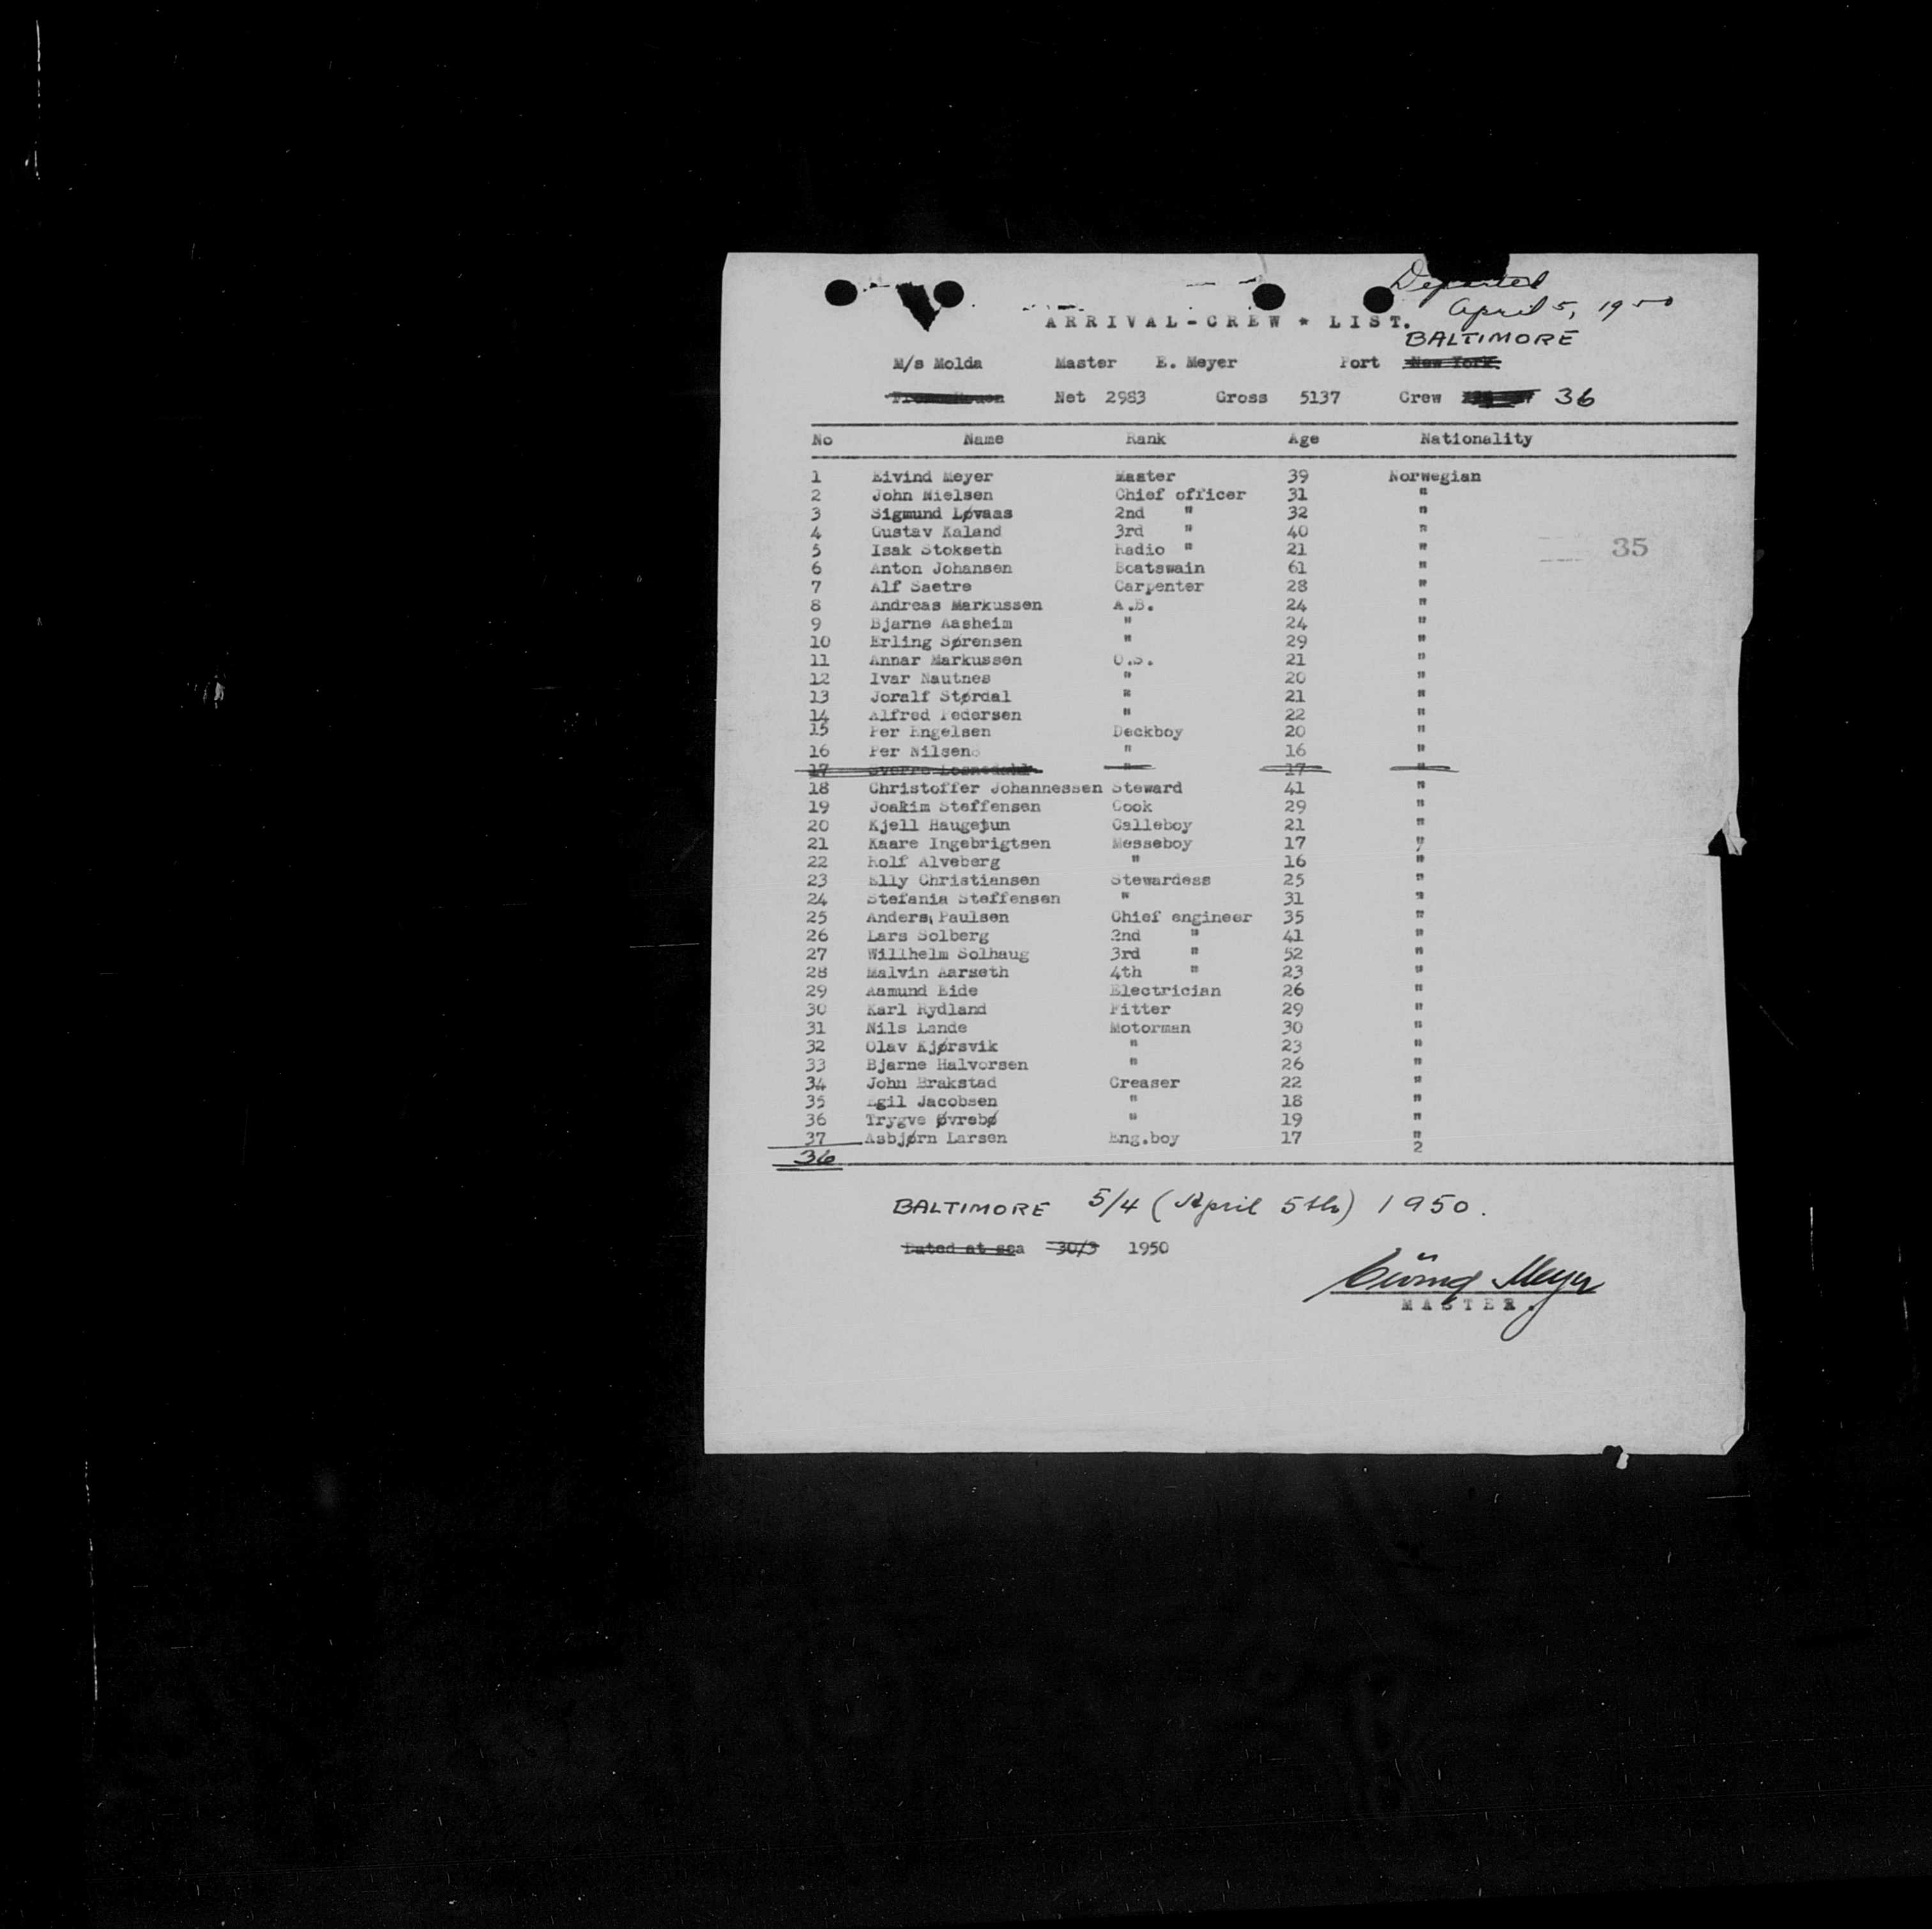 Departed
April 5, 1950
ARRIVAL-CREW * LIST.
BALTIMORE
M/s Molda Master E. Meyer Port New York
Net 2983 Gross 5137 Crew 36
No Name Rank Age Nationality
1 Eivind Meyer Master 39 Norwegian
2 John Nielsen Chief officer 31 "
3 Sigmund Løvaas 2nd " 32 "
4 Gustav Kaland 3rd " 40 "
5 Isak Stokseth Radio " 21 "
35
6 Anton Johansen Boatswain 61 "
7 Alf Saetre Carpenter 28 "
8 Andreas Markussen A.B. 24 "
9 Bjarne Aasheim " 24 "
10 Erling Sørensen " 29 "
11 Annar Markussen O.S. 21 "
12 Ivar Nautnes " 20 "
13 Joralf Størdal " 21 "
14 Alfred Pedersen " 22 "
15 Per Engelsen Deckboy 20 "
16 Per Nilsen " 16 "
17 Sverre " 17 "
18 Christoffer Johannessen Steward 41 "
19 Joakim Steffensen Cook 29 "
20 Kjell Haugetun Galleboy 21 "
21 Kaare Ingebrigtsen Messeboy 17 "
22 Rolf Alveberg " 16 "
23 Elly Christiansen Stewardess 25 "
24 Stefania Steffensen " 31 "
25 Anders Paulsen Chief engineer 35 "
26 Lars Solberg 2nd " 41 "
27 Willhelm Solhaug 3rd " 52 "
28 Malvin Aarseth 4th " 23 "
29 Aamund Eide Electrician 26 "
30 Karl Rydland Fitter 29 "
31 Nils Lande Motorman 30 "
32 Olav Kjørsvik " 23 "
33 Bjarne Halvorsen " 26 "
34 John Brakstad Greaser 22 "
35 Egil Jacobsen " 18 "
36 Trygve Øvrebø " 19 "
37 Asbjørn Larsen Eng.boy 17 "
2
36
BALTIMORE 5/4 (April 5th) 1950.
Dated at sea 30/3 1950
Eivind Meyer
MASTER.